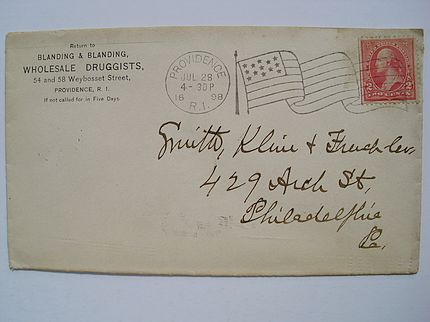 Return to
BLANDING & BLANDING,
WHOLESALE DRUGGISTS,
54 and 58 Weybosset Street,
PROVIDENCE, R. I.
If not called for in Five Days.
PROVIDENCE
JUL 28
4-30P
18 98
R.I.
2 2
Smith, Kline & French Co.
429 Arch St,
Philadelphia
Pa.